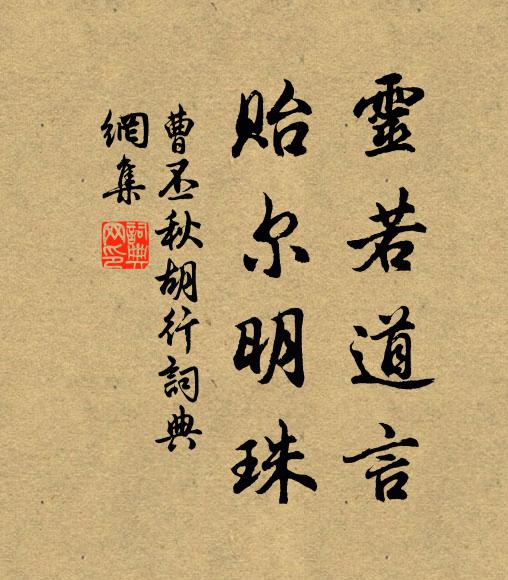 靈若道言
貽尔明珠
曹丕秋胡行詞典
網集
詞典
网印